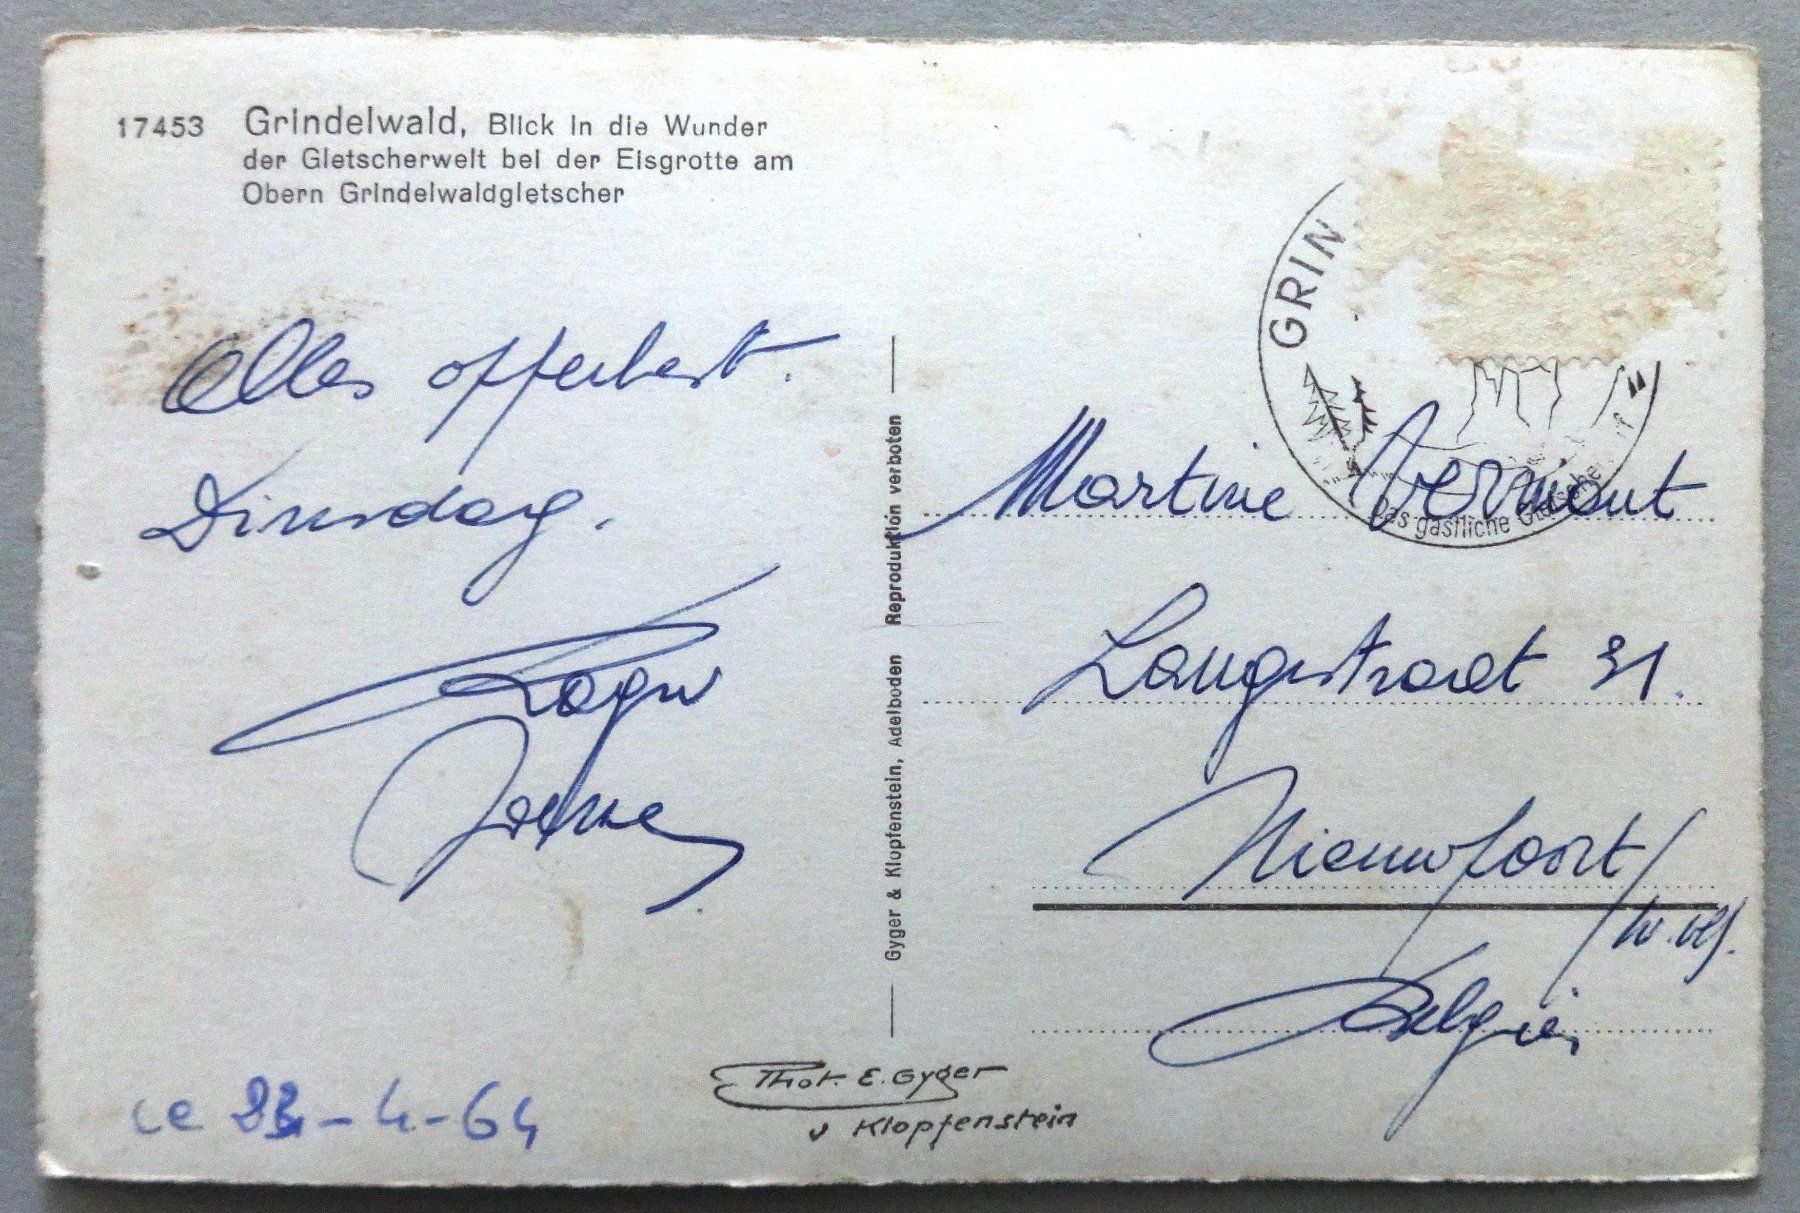 17453 Grindelwald, Blick in die Wunder
der Gletscherwelt bei der Eisgrotte am
Obern Grindelwaldgletscher
Alles opperbest.
Dinsdag.
Roger
GRIN
Das gastliche Gletscherdorf"
Martine Vermout
Langestraat 31.
Nieuwpoort/
W. Vl.
Belgie,
Gyger & Klopfenstein, Adelboden Reproduktion verboten
Phot. E. Gyger
v Klopfenstein
-4-64